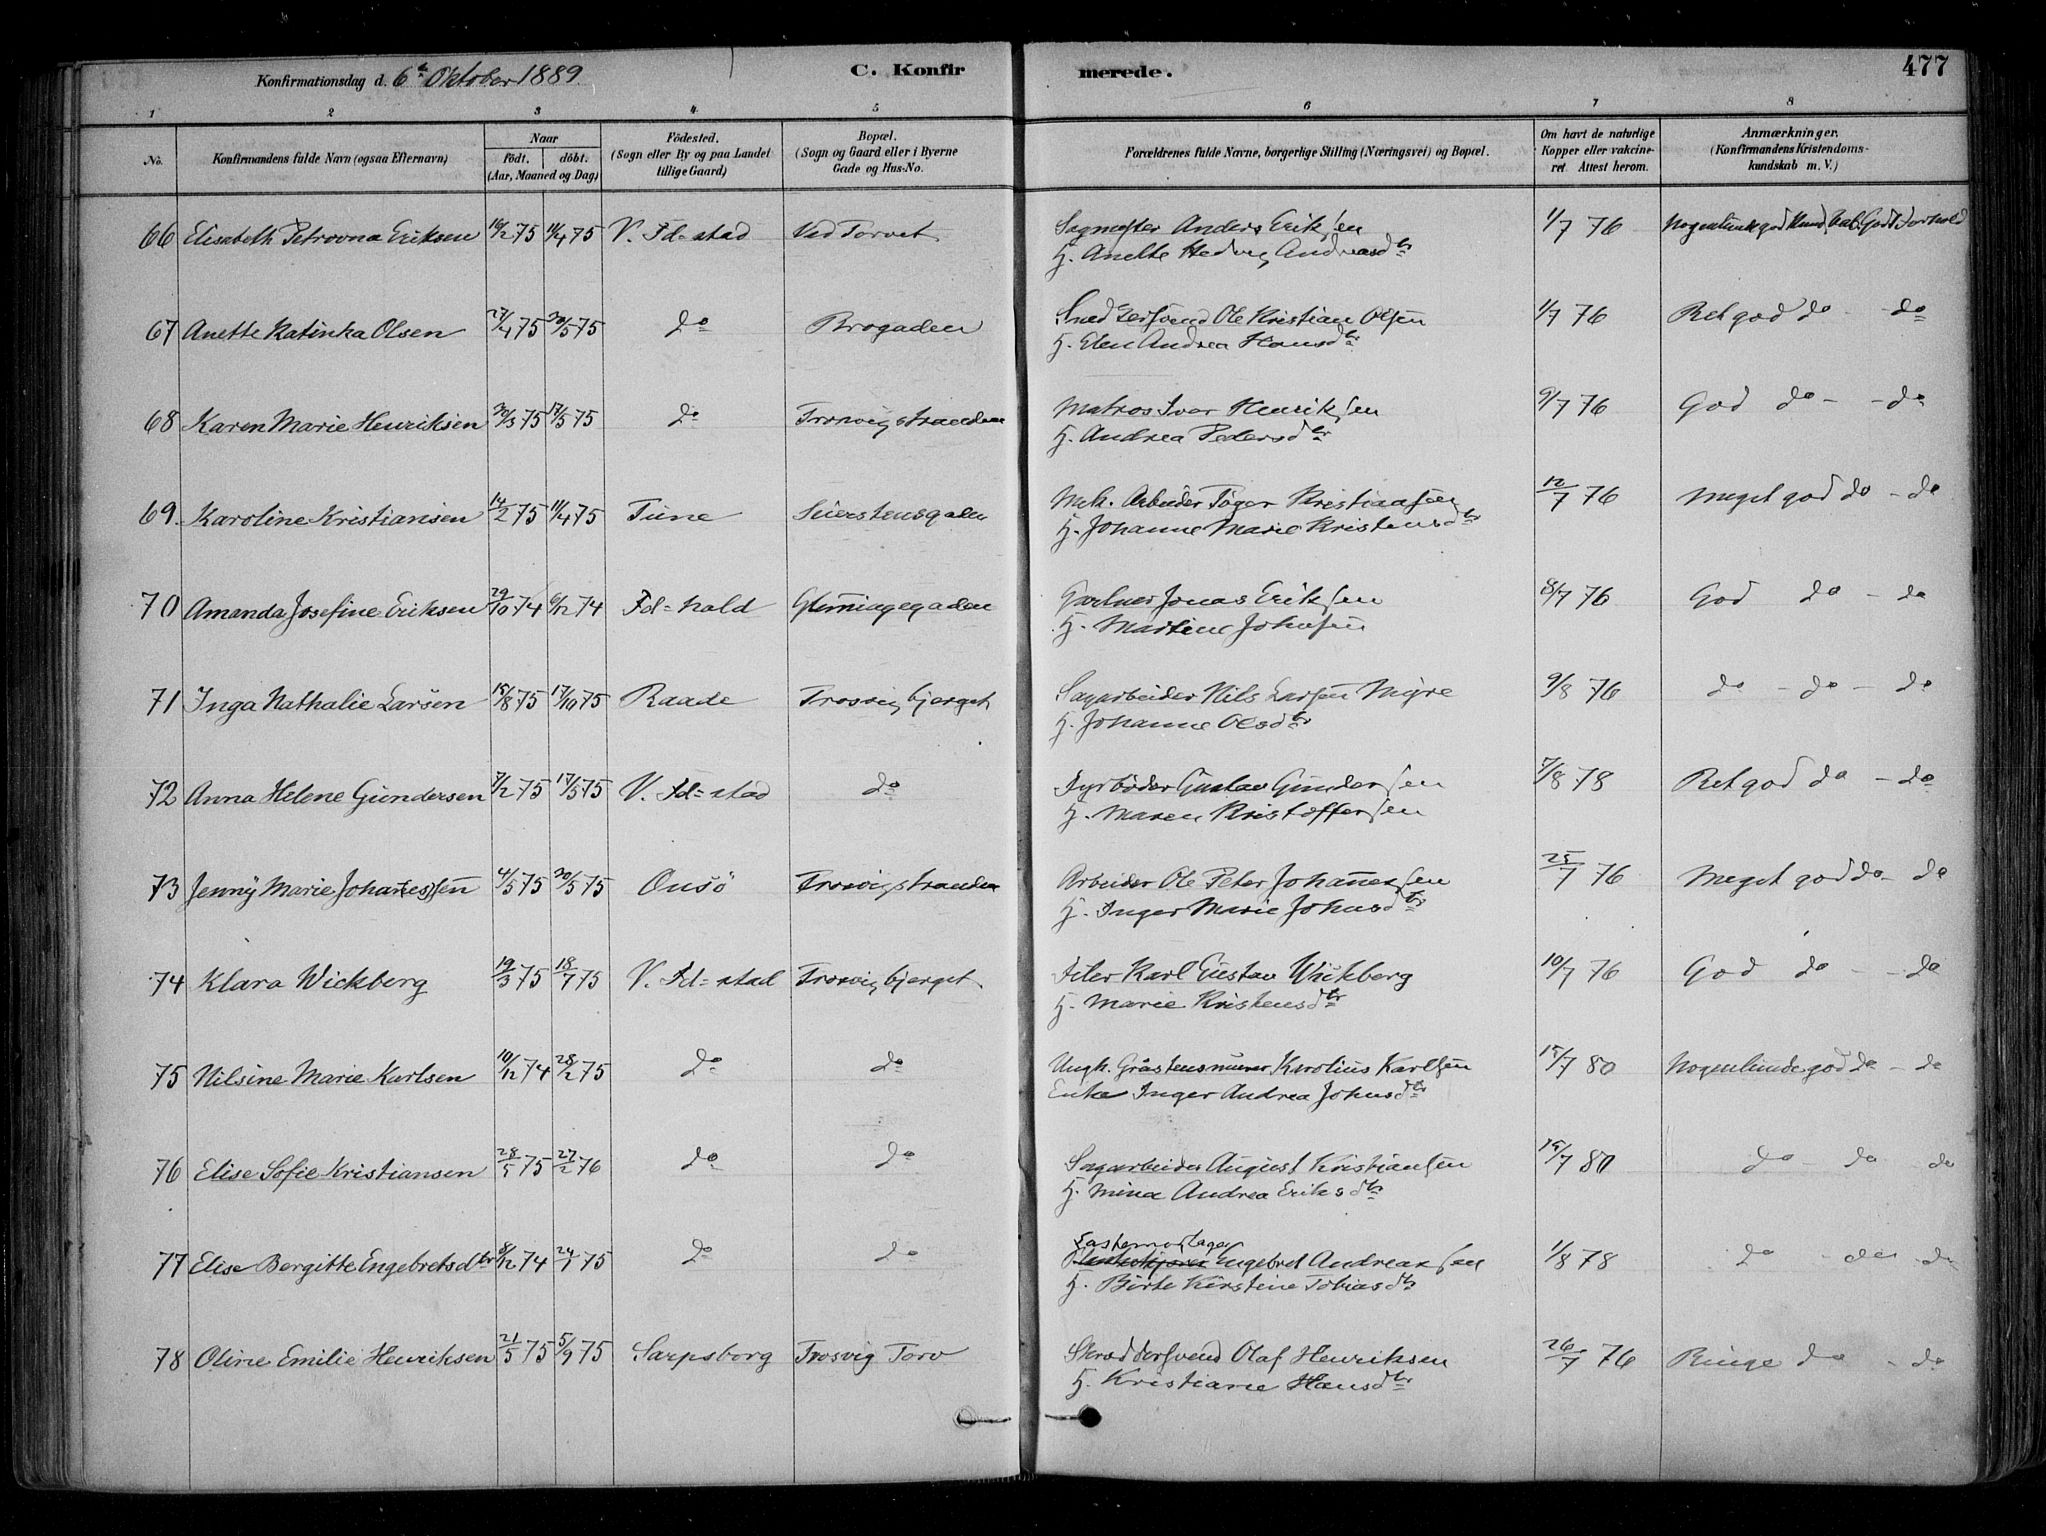 Konfirmationsdag d. 6te Oktober 1889. C. Konfirmerede. 477
1 2 3 4 5 6 7 8
No. Konfirmandens fulde Navn (ogsaa Efternavn) Naar födt. döbt. (Aar, Maaned og Dag) Födested. (Sogn eller By og paa Landet tillige Gaard) Bopæl. (Sogn og Gaard eller i Byerne Gade og Hus-No. Forældrenes fulde Navne, borgerlige Stilling (Næringsvei) og Bopæl. Om havt de naturlige Kopper eller vakcineret Attest herom. Anmærkninger. (Konfirmandens Kristendomskundskab m. V.)
66 Elisabeth Petrovna Eriksen 16/2 75 11/4 75 V. Fd=stad Ved Torvet Sagmester Anders Eriksen 1/7 76 Nogenlunde god Kundskab. Godt Forhold
H. Anette Hedvig Andreasdtr
67 Anette Katinka Olsen 27/4 75 30/5 75 do Brogaden Snedkersvend Ole Kristian Olsen 1/7 76 Ret god do - do
H. Elen Andrea Hansdtr
68 Karen Marie Henriksen 30/3 75 17/5 75 do Trosvigstranden Matros Ivar Henriksen 9/7 76 God do - do
H. Andrea Pedersdtr
69. Karoline Kristiansen 14/2 75 11/4 75 Tune Seierstensgaden Mek. Arbeider Töger Kristiansen 12/7 76 Meget god do - do
H. Johanne Marie Kristensdtr
70 Amanda Josefine Eriksen 29/10 74 6/12 74 Fd=hald Glemmingegaden Gartner Jonas Eriksen 8/7 76 God do - do
H. Martine Johnsen
71 Inga Nathalie Larsen 15/8 75 17/10 75 Raade Trosvigbjerget Sagarbeider Nils Larsen Myre 9/8 76 do - do - do
H. Johanne Olsdtr
72 Anna Helene Gundersen 7/2 75 17/5 75 V. Fd=stad do Fyrböder Gustav Gundersen 7/8 78 Ret god do - do
H. Maren Kristoffersen
73 Jenny Marie Johannessen 4/5 75 30/5 75 Onsö Trosvigstranden Arbeider Ole Peter Johannessen 25/7 76 Meget god do - do
H. Inger Marie Johnsdtr
74 Klara Wickberg 19/3 75 18/7 75 V. Fd=stad Trosvigbjerget Filer Karl Gustav Wickberg 10/7 76 God do - do
H. Marie Kristensdtr
75 Nilsine Marie Karlsen 10/12 74 28/2 75 do do Ungk. Gråstensmurer Karolius Karlsen 15/7 80 Nogenlunde god do - do
Enke Inger Andrea Johnsdtr
76 Elise Sofie Kristiansen 28/5 75 27/2 76 do do Sagarbeider August Kristiansen 15/7 80 do - do do
H. Mina Andrea Eriksdtr
77 Elise Bergitte Engebretsdtr 8/12 74 24/1 75 do do Engebret Andreassen 1/8 78 do - do do
H. Birte Kirstine Tobiasdtr
78 Oline Emilie Henriksen 21/5 75 5/9 75 Sarpsborg Trosvig Torv Skræddersvend Olaf Henriksen 26/7 76 Ringe do - do
H. Kristiane Hansdtr